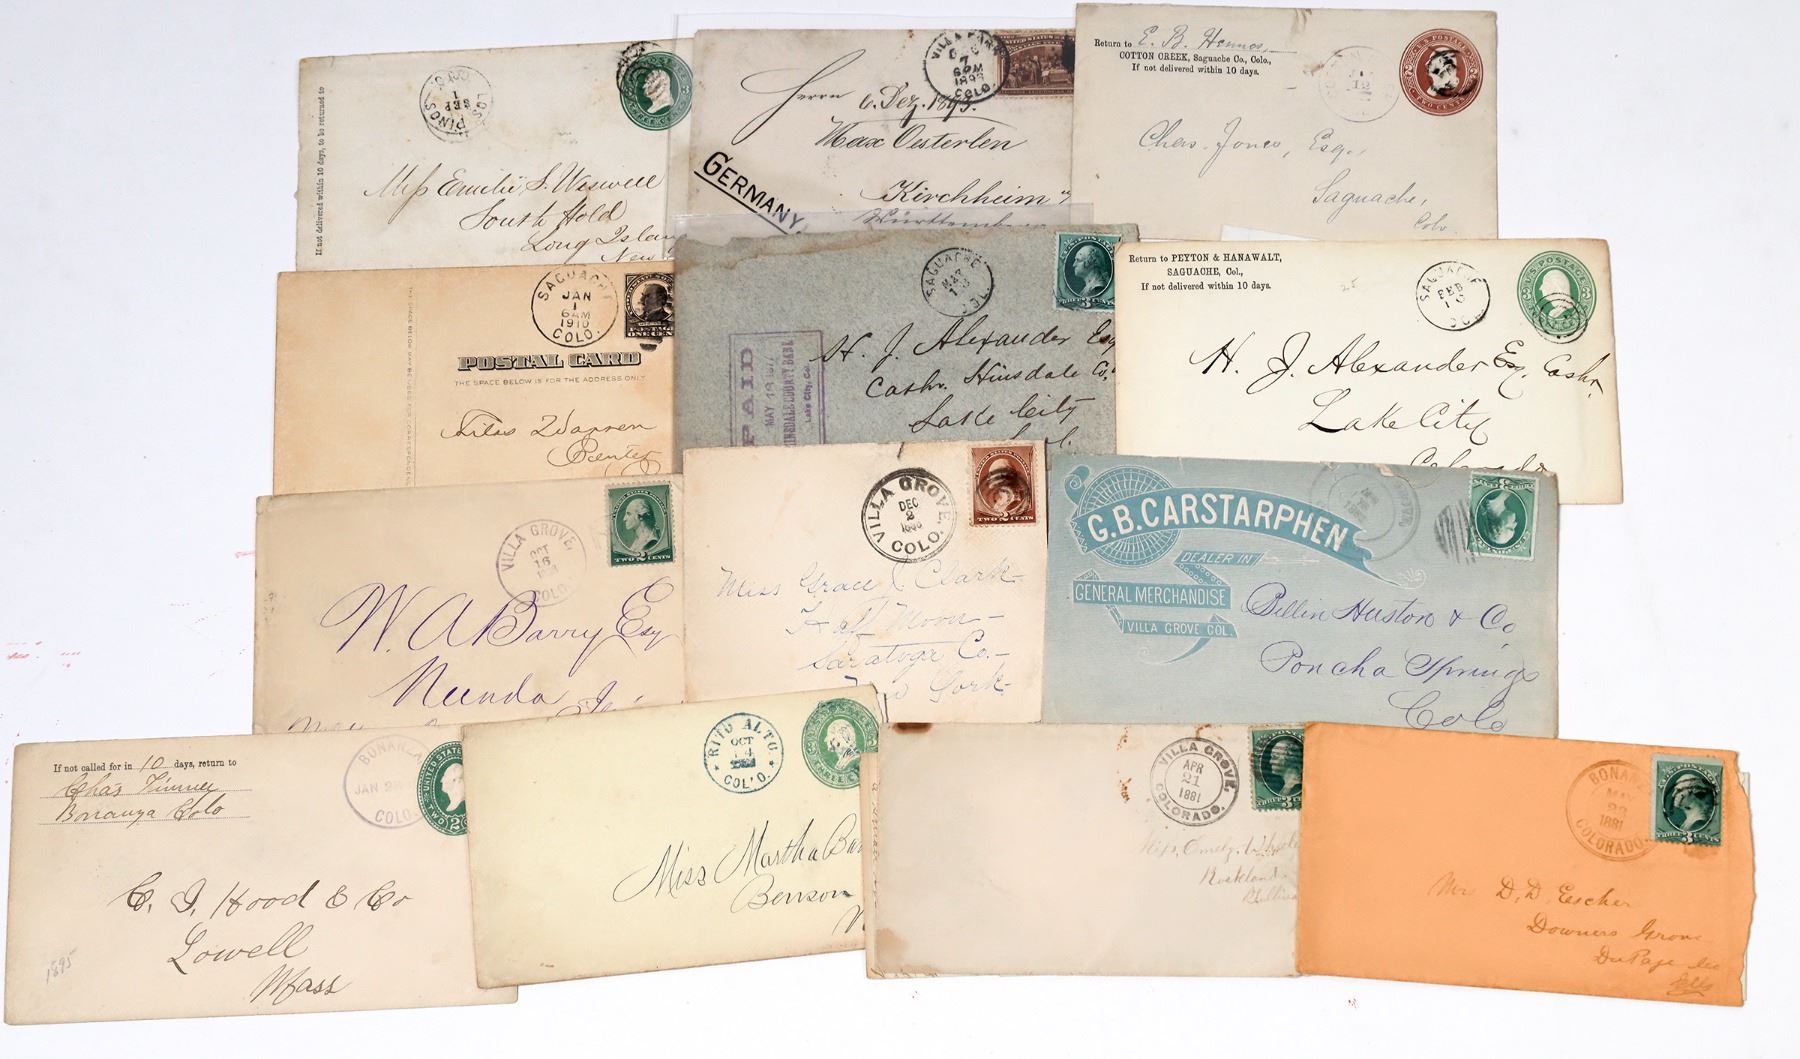 If not delivered within 10 days, to be returned to
LOS PINOS
SEP
1
COLO.
Miss Emilie S. Weswell
South Hold
Long Island
New
VILLA PARK
7
6 PM
1893
COLO.
Herrn
6. Dez. 1893.
Max Oesterlen
GERMANY.
Kirchheim
Württemberg
Return to E. B. Hennos,
COTTON CREEK, Saguache Co., Colo.,
If not delivered within 10 days.
U.S. POSTAGE
TWO CENTS
Chas. Jones, Esq.,
Saguache,
Colo.
SAGUACHE
JAN
1
6 AM
1910
COLO.
POSTAGE
ONE CENT
POSTAL CARD
THE SPACE BELOW IS FOR THE ADDRESS ONLY
THE SPACE BELOW MAY BE USED FOR CORRESPONDENCE
Silas Warren
Center
SAGUACHE
MAY
COL.
U.S. POSTAGE
THREE 3 CENTS
PAID
MAY 18 1877
HINSDALE COUNTY BANK
Lake City, Col.
H. J. Alexander Esq
Cashr. Hinsdale Co.
Lake City
Col.
Return to PEYTON & HANAWALT,
SAGUACHE, Col.,
If not delivered within 10 days.
25
SAGUACHE
FEB
10
COL
U.S. POSTAGE
H. J. Alexander Esq. Cashr.
Lake City
Colorado
VILLA GROVE,
OCT
16
COLO.
2 CENTS
W. A Barry Esq
Nunda
VILLA GROVE,
DEC
2
COLO.
TWO 2 CENTS
Miss Grace Clark
Half Moon
Saratoga Co.
New York
G.B. CARSTARPHEN
DEALER IN
GENERAL MERCHANDISE
VILLA GROVE COL.
Billin Huston & Co
Poncha Springs
Colo
If not called for in 10 days, return to
Chas
Bonanza Colo
BONANZA
JAN 28
COLO.
UNITED STATES
TWO 2
C. I. Hood & Co
Lowell
Mass
1895
RITO ALTO
OCT
14
COL'O.
THREE
Miss Martha
Benson
VILLA GROVE,
APR
21
1881
COLORADO.
U.S. POSTAGE
THREE 3
Rockland
Sullivan
BONANZA
MAY
1881
COLORADO.
THREE 3 CENTS
Mrs D. D. Escher
Downers Grove
DuPage Co
Ills